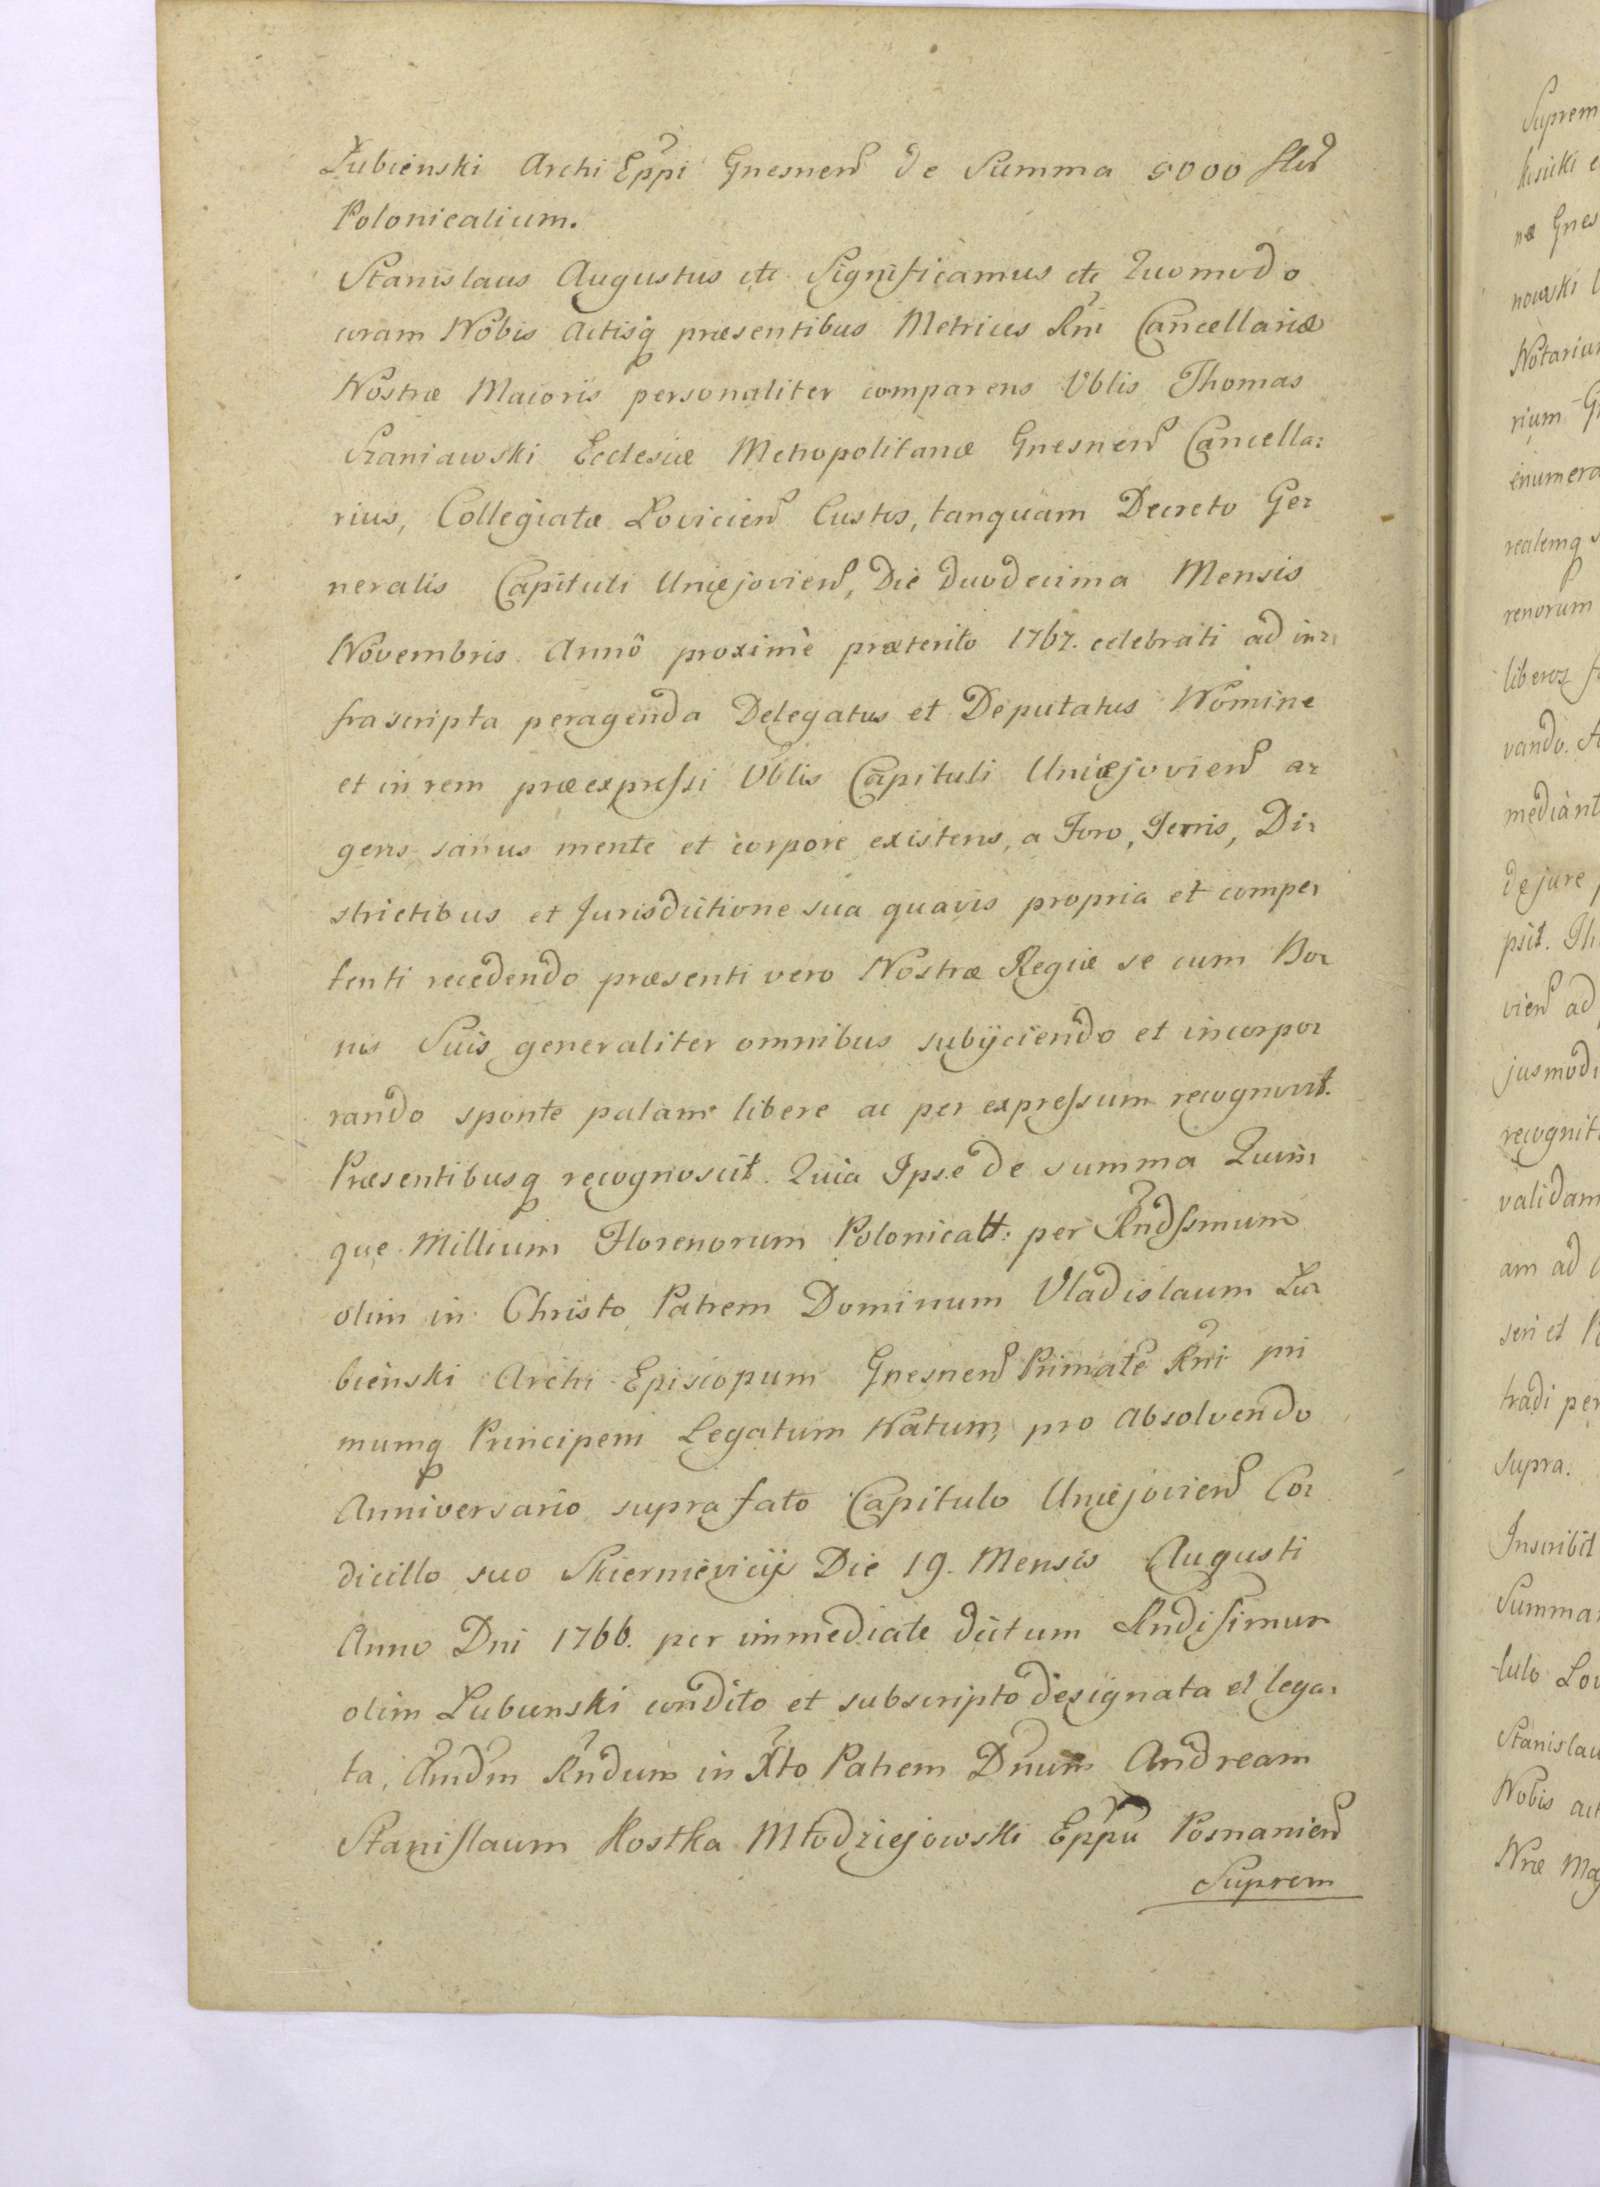 Łubienski Archi Eppi Gnesnen de Summa 5000 flor
Polonicalium.
Stanislaus Augustus etc Significamus etc Quomodo
coram Nobis Actisq præsentibus Metrices Rni Cancellariæ
Nostræ Maioris personaliter comparens Vblis Thomas
Szaniawski Ecclesiæ Metropolitanæ Gnesnen Cancella:
rius, Collegiatæ Lovicien Custos, tanquam Decreto Ge:
neralis Capituli Uniejovien, Die duodecima Mensis
Novembris Annô proximè præterito 1767. celebrati ad in:
frascripta peragenda Delegatus et Deputatus Nomine
et in rem præexpressi Vblis Capituli Uniejovien a:
gens sanus mente et corpore existens, a Foro, Terris, Di:
strictibus et Jurisdictione sua quavis propria et compe:
tenti recedendo præsenti vero Nostræ Regiæ se cum Bo:
nis Suis generaliter omnibus subijciendo et incorpo:
rando sponte palam libere ac per expressum recognovit.
Præsentibusq recognoscit. Quia Ipse de summa Quin:
que Millium Florenorum Polonicall: per Rndssmum
olim in Christo Patrem Dominum Vladislaum Lu:
bienski Archi Episcopum Gnesnen Primate Rni pri
mumq Principem Legatum Natum, pro absolvendo
Anniversario suprafato Capitulo Uniejovien Co:
dicillo suo Skiernievicijs Die 19. Mensis Augusti
Anno Dni 1766. per immediate dictum Rndissimum
olim Lubienski condito et subscripto designata et lega:
ta, Rndum in Xto Patrem Dnum Andream
Stanislaum Kostka Młodziejowski Eppū Posnanien
Suprem
Suprem
næ Gnes
nowski
Notariu
rium
enumera
realemq
renorum
vando.
mediant
de jure
vien ad
jusmodi
recognit
validam
am ad
seri et
tradi per
supra.
Inscribit
Summa
tulo Lov
Stanislau
Nobis act
Nræ Maj